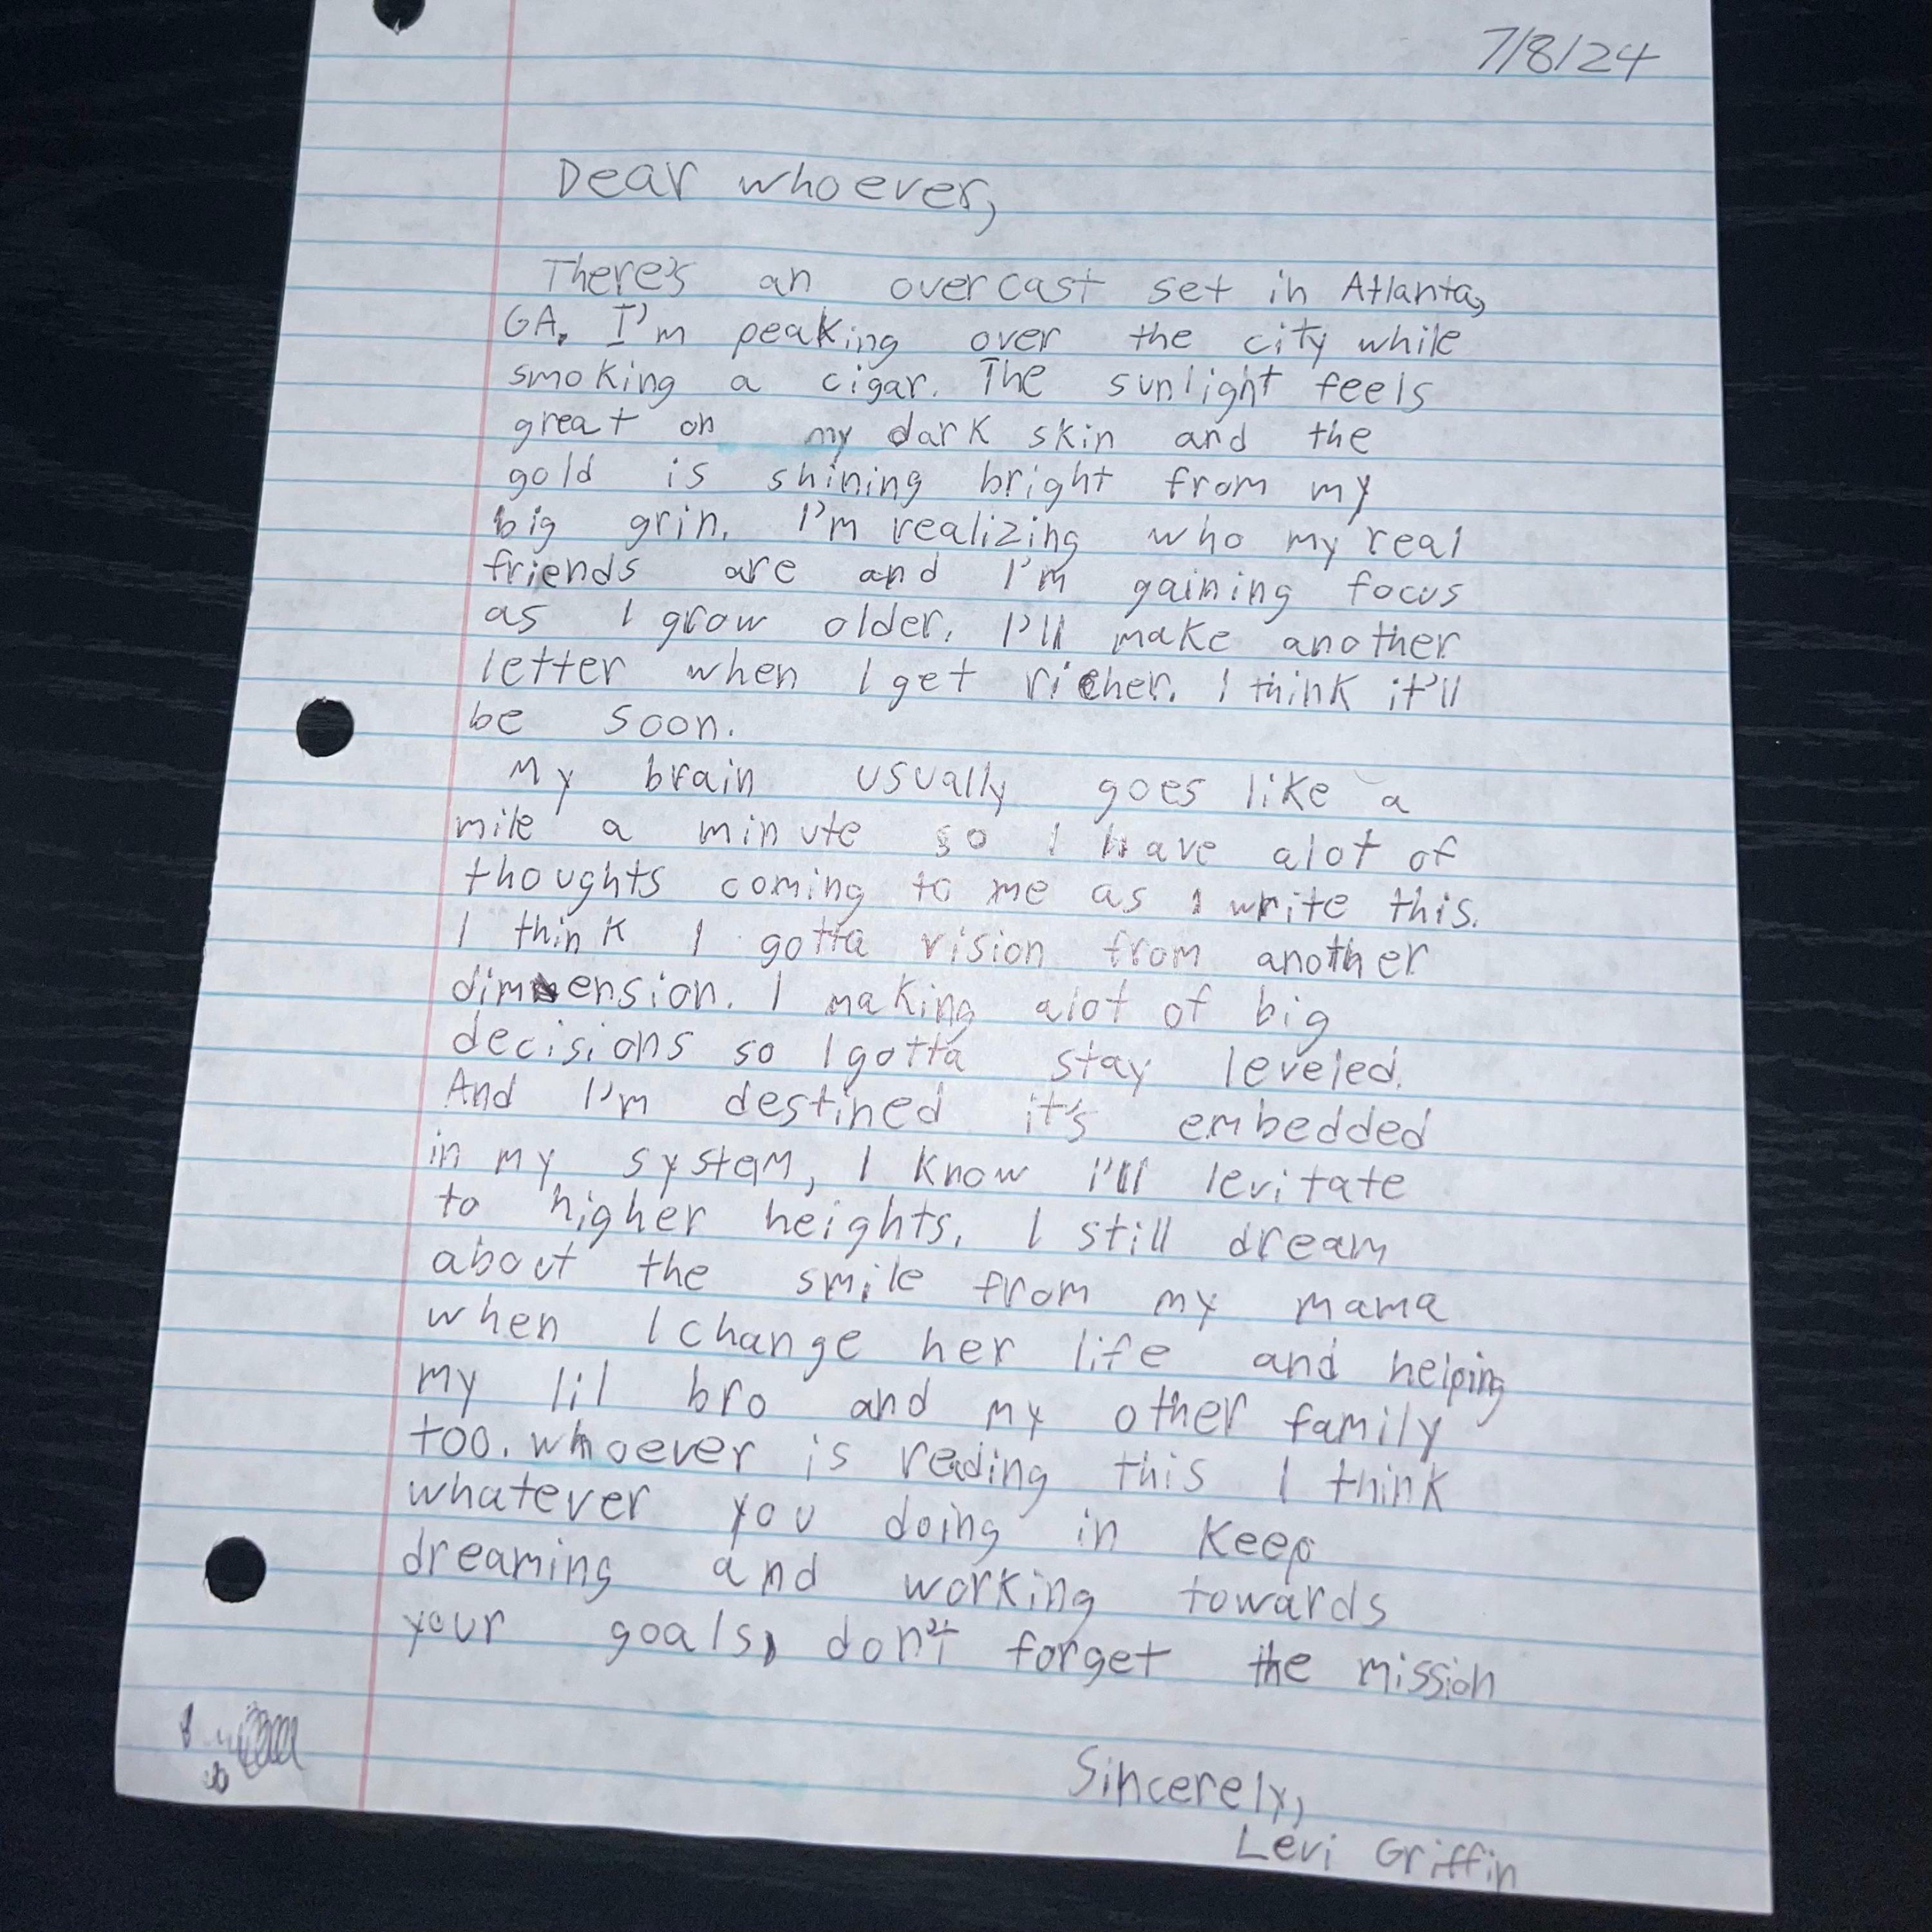 7/8/24
Dear whoever,
There's an overcast set in Atlanta,
GA. I'm peaking over the city while
smoking a cigar. The sunlight feels
great on my dark skin and the
gold is shining bright from my
big grin. I'm realizing who my real
friends are and I'm gaining focus
as I grow older. I'll make another
letter when I get richer. I think it'll
be soon.
My brain usually goes like a
mile a minute so I have alot of
thoughts coming to me as I write this.
I think I gotta vision from another
dimension. I making alot of big
decisions so I gotta stay leveled.
And I'm destined it's embedded
in my system, I know I'll levitate
to higher heights. I still dream
about the smile from my mama
when I change her life and helping
my lil bro and my other family
too. whoever is reading this I think
whatever you doing in keep
dreaming and working towards
your goals, don't forget the mission
Sincerely,
Levi Griffin